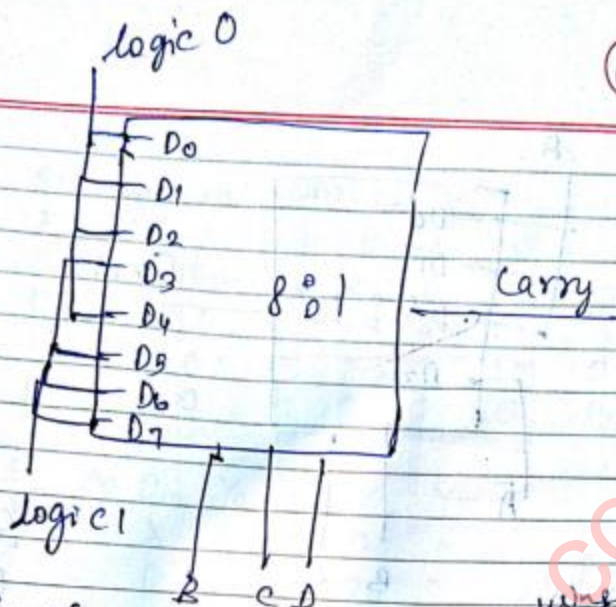 logic 0
D0
D1
D2
D3
D4
D5
D6
D7
8:1
Carry
logic1
B C D